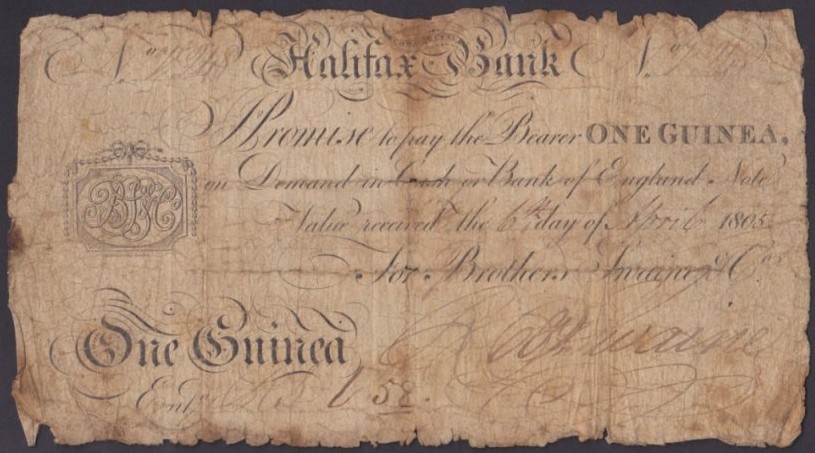 No. Halifax Bank No.
I Promise to pay the Bearer ONE GUINEA,
on Demand in Cash or Bank of England Note
Value received the 6th day of April 1805
For Brothers Swaine & Co.
One Guinea
Entd. 58.